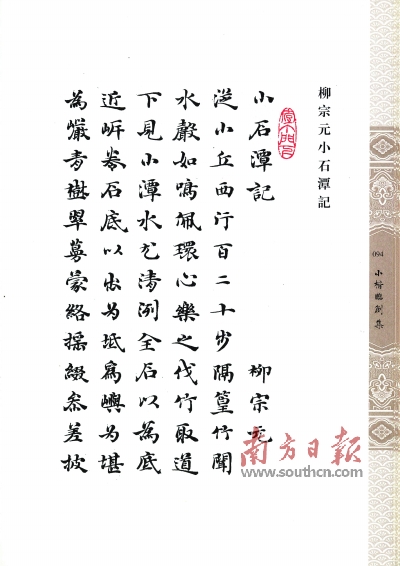 094
小楷臨創集
柳宗元小石潭記
小石潭記 柳宗元
從小丘西行百二十步隔篁竹聞
水聲如鳴佩環心樂之伐竹取道
下見小潭水尤清洌全石以為底
近岸卷石底以出為坻為嶼為堪
為巖青樹翠蔓蒙絡搖綴參差披
南方日報
www.southcn.com